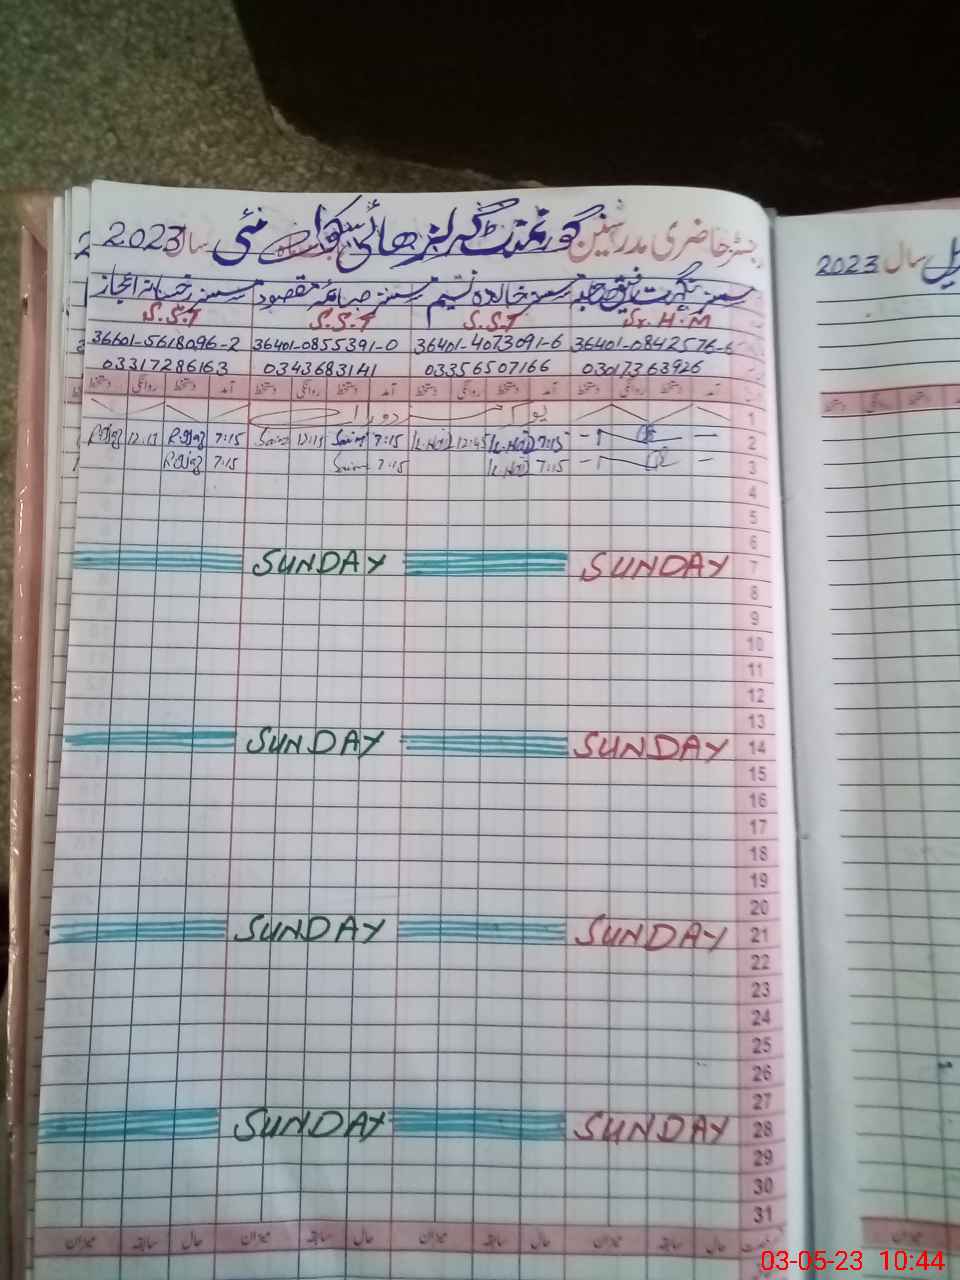 رجسٹر حاضری مدرسین گورنمنٹ گرلز ہائی سکول مئی سال 2023
مسز نگہت مسز خالدہ نسیم مسز صائمہ مقصود مسز رخسانہ اعجاز
Sr. H.M S.S.T S.S.T S.S.T
36401-0842576-6 36401-4073091-6 36401-0855391-0 36601-5618096-2
03017363926 03356507166 0343683141 03317286163
آمد دستخط روانگی دستخط آمد دستخط روانگی دستخط آمد دستخط روانگی دستخط آمد دستخط روانگی دستخط
1
2 7:15 12:45 7:15 12:15 7:15 12:15
3 7:15 7:15 7:15
4
5
6
7 SUNDAY SUNDAY
8
9
10
11
12
13
14 SUNDAY SUNDAY
15
16
17
18
19
20
21 SUNDAY SUNDAY
22
23
24
25
26
27
28 SUNDAY SUNDAY
29
30
31
حال سابقہ میزان حال سابقہ میزان حال سابقہ میزان حال سابقہ میزان
سال 2023
03-05-23 10:44